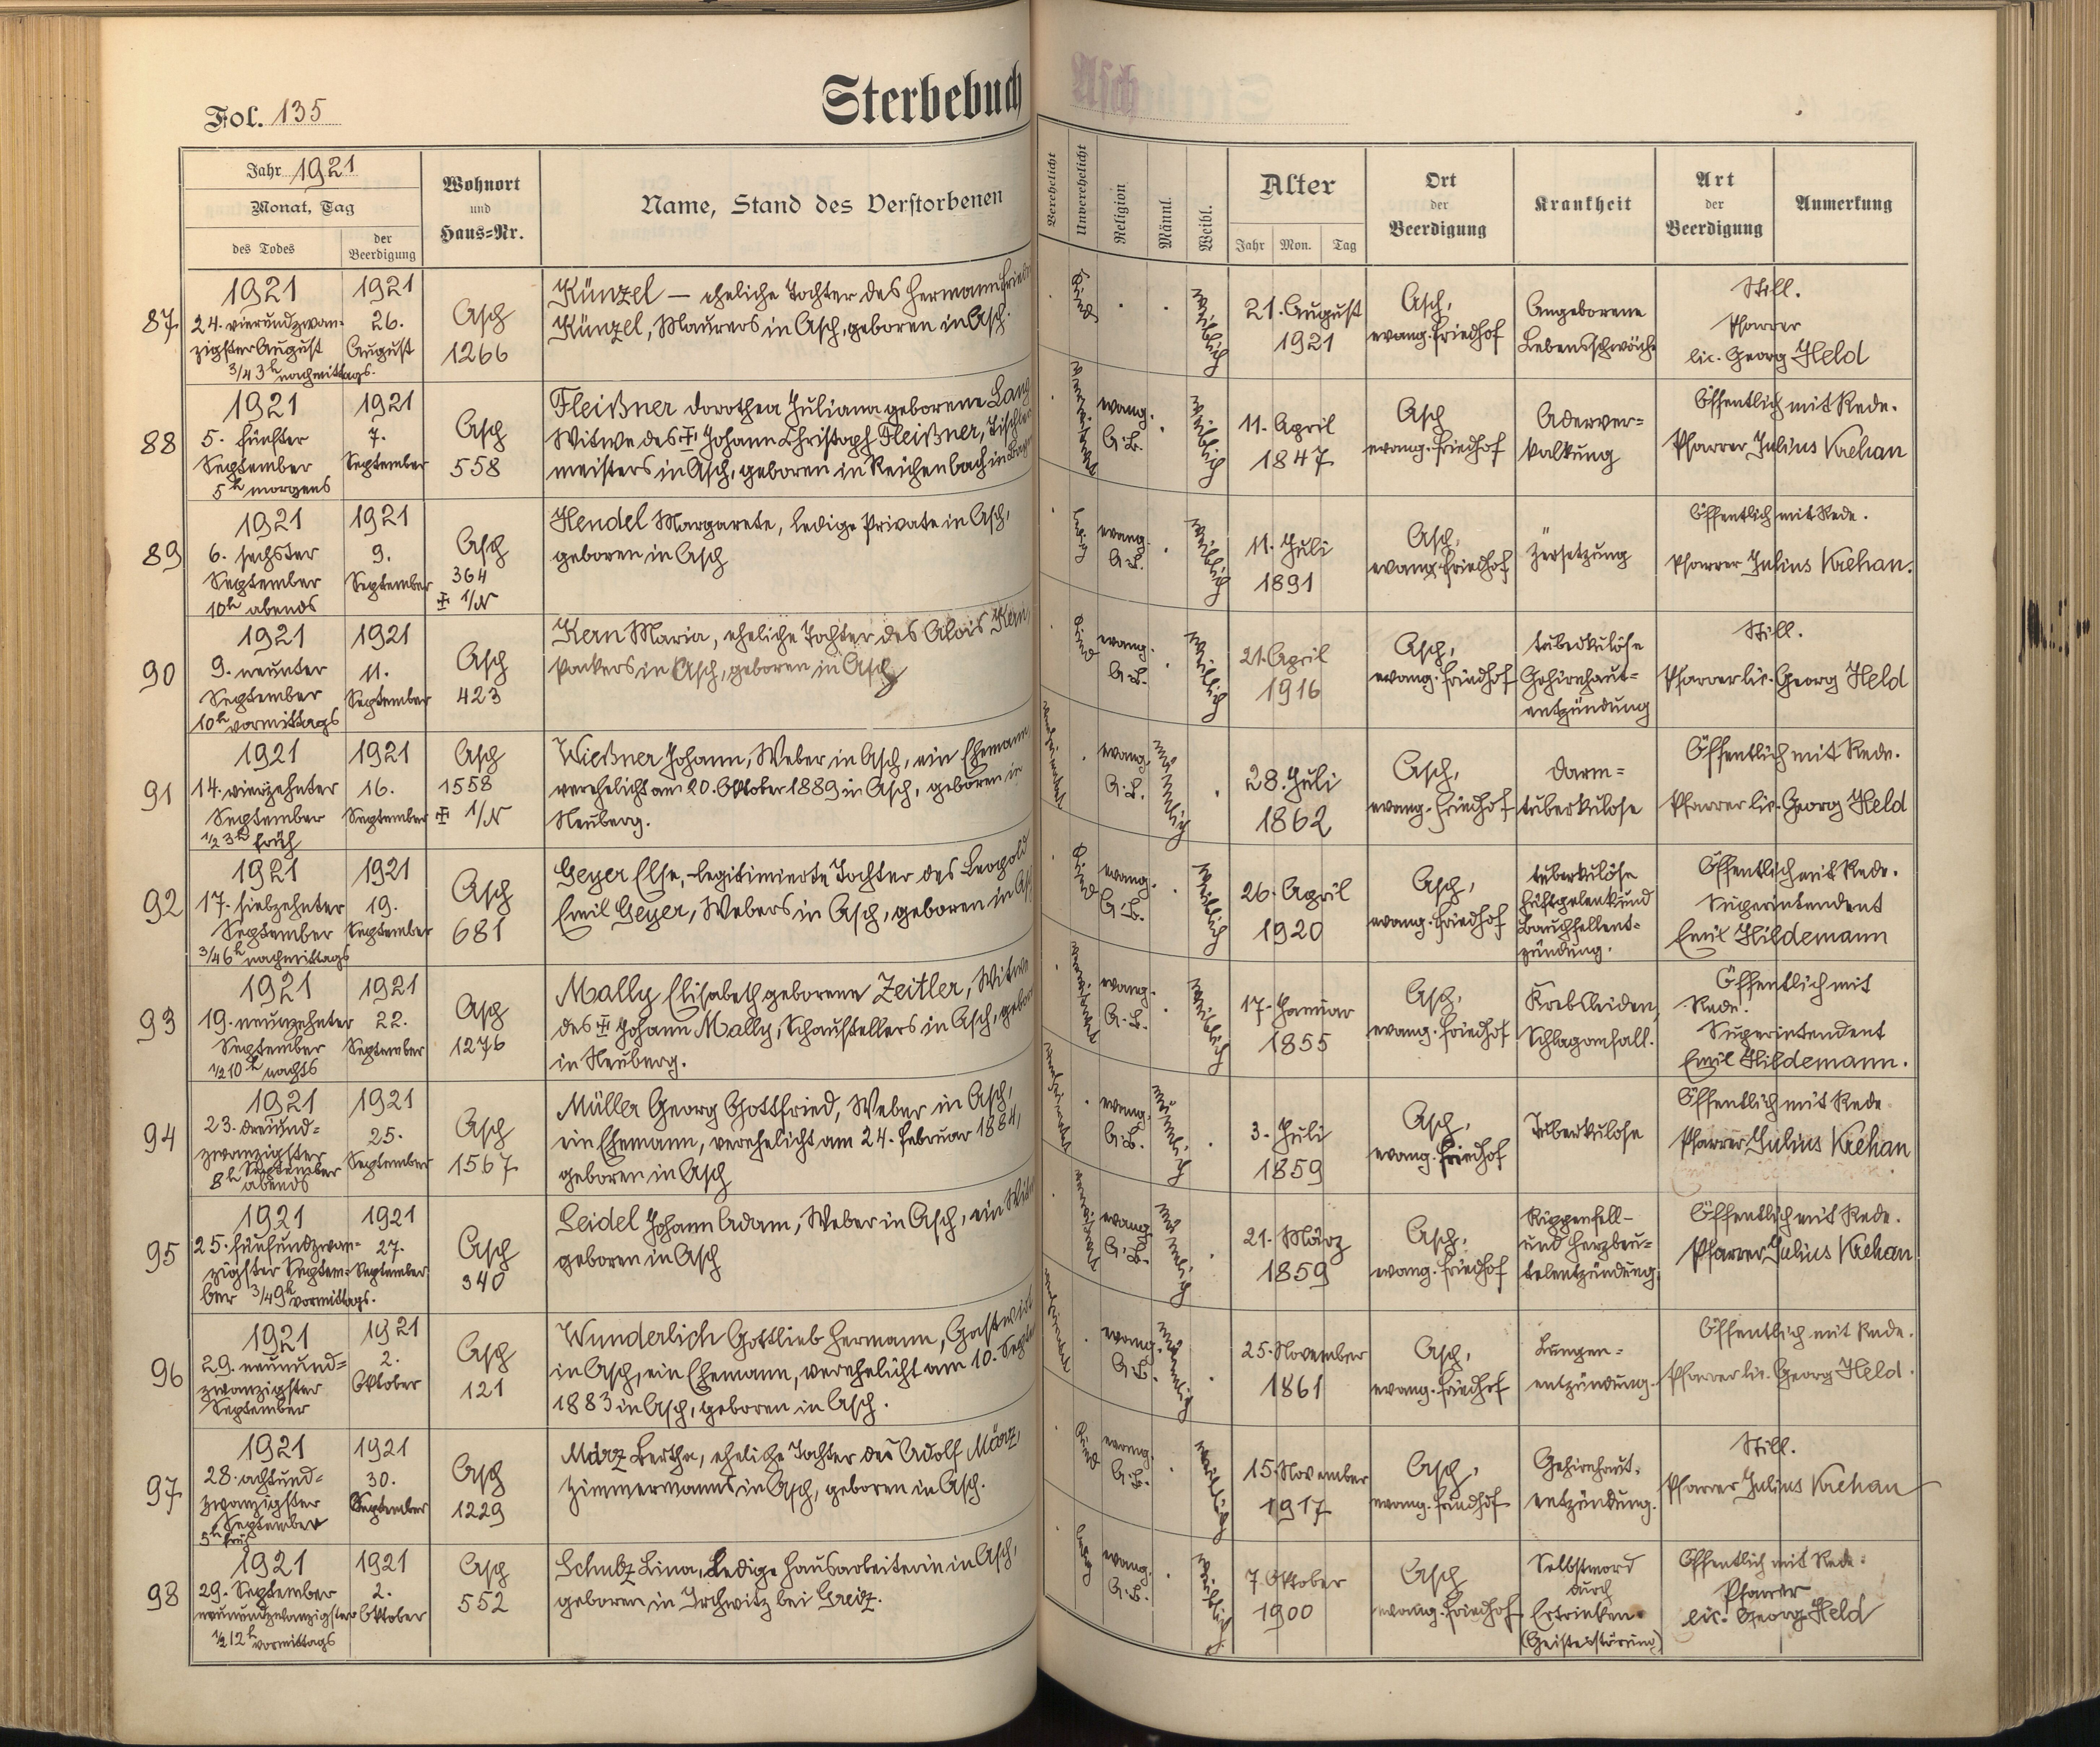 Fol. 135
Sterbebuch
Asch
Jahr 1921
Monat, Tag
des Todes
der Beerdigung
Wohnort
und
Haus=Nr.
Name, Stand des Verstorbenen
Verehelicht
Unverehelicht
Religion
Männl.
Weibl.
Alter
Jahr Mon. Tag
Ort
der
Beerdigung
Krankheit
Art
der
Beerdigung
Anmerkung
87
1921
24. vierundzwan-
zigster August
3/4 3h nachmittags.
1921
26.
August
Asch
1266
Künzel — eheliche Tochter des Hermann
Künzel, Maurers in Asch, geboren in Asch.
Kind
weiblich
21. August
1921
Asch,
evang. Friedhof
Angeborene
Lebensschwäche
Still.
Pfarrer
lic. Georg Held
88
1921
5. fünfter
September
5h morgens
1921
7.
September
Asch
558
Fleißner Dorothea Juliana geborene Lang
Witwe des ☩ Johann Christoph Fleißner, Tischler
meisters in Asch, geboren in Reichenbach in
verwitwet
evang.
A.B.
weiblich
11. April
1847
Asch
evang. Friedhof
Aderver=
kalkung
Öffentlich mit Rede.
Pfarrer Julius Krehan
89
1921
6. sechster
September
10h abends
1921
9.
September
Asch
364
☩ 1/N
Hendel Margarete, ledige Private in Asch,
geboren in Asch
ledig
evang.
A.B.
weiblich
11. Juli
1891
Asch,
evang. Friedhof
Zersetzung
Öffentlich mit Rede.
Pfarrer Julius Krehan.
90
1921
9. neunter
September
10h vormittags
1921
11.
September
Asch
423
Kern Maria, eheliche Tochter des Alois Kern,
Packers in Asch, geboren in Asch
Kind
evang.
A.B.
weiblich
21. April
1916
Asch,
evang. Friedhof
tuberkulöse
Gehirnhaut=
entzündung
Still.
Pfarrer lic. Georg Held
91
1921
14. vierzehnter
September
1/2 3h früh
1921
16.
September
Asch
1558
☩ 1/N
Wießner Johann, Weber in Asch, ein Ehemann
verehelicht am 20. Oktober 1889 in Asch, geboren in
Neuberg.
verheiratet
evang.
A.B.
männlich
28. Juli
1862
Asch,
evang. Friedhof
Darm=
tuberkulose
Öffentlich mit Rede.
Pfarrer lic. Georg Held
92
1921
17. siebzehnter
September
3/4 6h nachmittags
1921
19.
September
Asch
681
Geyer Else, legitimierte Tochter des Leopold
Emil Geyer, Webers in Asch, geboren in Asch
Kind
evang.
A.B.
weiblich
26. April
1920
Asch,
evang. Friedhof
tuberkulöse
Hüftgelenk und
Bauchfellent=
zündung.
Öffentlich mit Rede.
Superintendent
Emil Hildemann
93
1921
19. neunzehnter
September
1/2 10h nachts
1921
22.
September
Asch
1276
Mally Elisabeth geborene Zeitler, Witwe
des ☩ Johann Mally, Schaustellers in Asch, geboren
in Neuberg.
verwitwet
evang.
A.B.
weiblich
17. Januar
1855
Asch,
evang. Friedhof
Krebsleiden,
Schlaganfall.
Öffentlich mit
Rede.
Superintendent
Emil Hildemann.
94
1921
23. dreiund=
zwanzigster
September
8h abends
1921
25.
September
Asch
1567
Müller Georg Gottfried, Weber in Asch,
ein Ehemann, verehelicht am 24. Februar 1884,
geboren in Asch
verheiratet
evang.
A.B.
männlich
3. Juli
1859
Asch,
evang. Friedhof
Tuberkulose
Öffentlich mit Rede
Pfarrer Julius Krehan
95
1921
25. fünfundzwan-
zigster Septem-
ber 3/4 9h vormittags.
1921
27.
September
Asch
340
Seidel Johann Adam, Weber in Asch, ein Witwer
geboren in Asch
verwitwet
evang.
A.B.
männlich
21. März
1859
Asch,
evang. Friedhof
Rippenfell-
und Herzbeu=
telentzündung.
Öffentlich mit Rede.
Pfarrer Julius Krehan
96
1921
29. neunund=
zwanzigster
September
1921
2.
Oktober
Asch
121
Wunderlich Gottlieb Hermann, Gastwirt
in Asch, ein Ehemann, verehelicht am 10. Septem
1883 in Asch, geboren in Asch.
verheiratet
evang.
A.B.
männlich
25. November
1861
Asch,
evang. Friedhof
Lungen=
entzündung.
Öffentlich mit Rede.
Pfarrer lic. Georg Held.
97
1921
28. achtund=
zwanzigster
September
5h früh
1921
30.
September
Asch
1229
März Bertha, eheliche Tochter des Adolf März,
Zimmermanns in Asch, geboren in Asch.
Kind
evang.
A.B.
weiblich
15. November
1917
Asch,
evang. Friedhof
Gehirnhaut-
entzündung.
Still.
Pfarrer Julius Krehan
98
1921
29. September
neunundzwanzigster
1/2 12h vormittags
1921
2.
Oktober
Asch
552
Schulz Lina, Ledige Hausarbeiterin in Asch,
geboren in Irchwitz bei Greiz.
ledig
evang.
A.B.
weiblich
7. Oktober
1900
Asch
evang. Friedhof
Selbstmord
durch
Ertrinken
(Geistesstörung)
Öffentlich mit Rede.
Pfarrer
lic. Georg Held